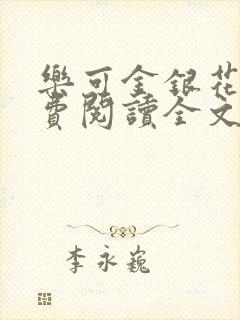 樂可金銀花
費閱讀全文
李永巍